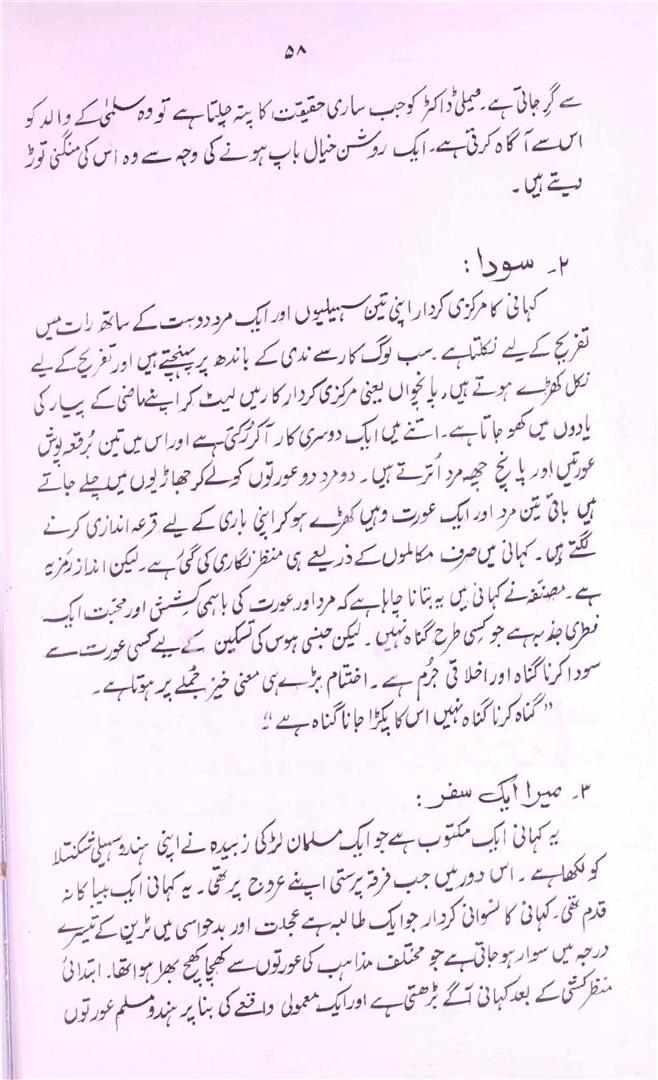 ۵۸
سے گِر جاتی ہے۔ فیملی ڈاکٹر کو جب ساری حقیقت کا پتہ چلتا ہے تو وہ سلمیٰ کے والد کو
اس سے آگاہ کرتی ہے۔ ایک روشن خیال باپ ہونے کی وجہ سے وہ اس کی منگنی توڑ
دیتے ہیں۔
۲۔ سودا:
کہانی کا مرکزی کردار اپنی تین سہیلیوں اور ایک مرد دوست کے ساتھ رات میں
تفریح کے لیے نکلتا ہے۔ سب لوگ کار سے ندی کے باندھ پر پہنچتے ہیں اور تفریح کے لیے
نکل کھڑے ہوتے ہیں، پانچواں یعنی مرکزی کردار کار میں لیٹ کر اپنے ماضی کے پیار کی
یادوں میں کھو جاتا ہے۔ اتنے میں ایک دوسری کار آ کر رُکتی ہے اور اس میں تین بُرقعہ پوش
عورتیں اور پانچ چھ مرد اُترتے ہیں۔ دو مرد دو عورتوں کو لے کر جھاڑیوں میں چلے جاتے
ہیں باقی تین مرد اور ایک عورت وہیں کھڑے ہو کر اپنی باری کے لیے قرعہ اندازی کرنے
لگتے ہیں۔ کہانی میں صرف مکالموں کے ذریعے ہی منظر نگاری کی گئی ہے۔ لیکن انداز رمزیہ
ہے۔ مصنفہ نے کہانی میں یہ بتانا چاہا ہے کہ مرد اور عورت کی باہمی کشش اور محبت ایک
فطری جذبہ ہے جو کسی طرح گناہ نہیں۔ لیکن جنسی ہوس کی تسکین کے لیے کسی عورت سے
سودا کرنا گناہ اور اخلاقی جُرم ہے۔ اختتام بڑے ہی معنی خیز جُملے پر ہوتا ہے۔
"گناہ کرنا گناہ نہیں اس کا پکڑا جانا گناہ ہے"۔
۳۔ میرا ایک سفر:
یہ کہانی ایک مکتوب ہے جو ایک مسلمان لڑکی زبیدہ نے اپنی ہندو سہیلی شکنتلا
کو لکھا ہے۔ اس دور میں جب فرقہ پرستی اپنے عروج پر تھی۔ یہ کہانی ایک بیباکانہ
قدم تھی۔ کہانی کا نسوانی کردار جو ایک طالبہ ہے عجلت اور بدحواسی میں ٹرین کے تیسرے
درجہ میں سوار ہو جاتی ہے جو مختلف مذاہب کی عورتوں سے کھچا کھچ بھرا ہوا تھا۔ ابتدائی
منظر کشی کے بعد کہانی آگے بڑھتی ہے اور ایک معمولی واقعے کی بنا پر ہندو مسلم عورتوں